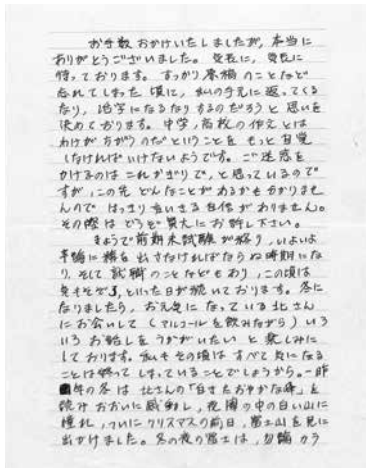 お手数おかけいたしましたが、本当に
ありがとうございました。気長に、気長に
待っております。すっかり原稿のことなど
忘れてしまった頃に、私の手元に返ってくる
なり、活字になるなりするのだろうと思いを
決めております。中学、高校の作文とは
わけがちがうのだということをもっと自覚
しなければいけないようです。ご迷惑を
かけるのはこれかぎりで、と思っているので
すが、この先どんなことがあるかもわかりませ
んので はっきり言いきる自信がありません。
その際はどうぞ寛大にお許し下さい。
きょうで前期末試験が終り、いよいよ
本論に精を出さなければならぬ時期にな
り、そして就職のことなどもあり、この頃は
気もそぞろ、といった日が続いております。冬に
なりましたら、お元気になっている北さん
にお会いして(アルコールを飲みながら)いろ
いろお話しをうかがいたいと楽しみに
しております。私もその頃はすべて気になる
ことは終ってしまっていることでしょうから。一昨
年の冬は北さんの「白きたおやかな峰」を
読みおおいに感動し、夜闇の中の白い山に
憧れ、ついにクリスマスの前日、富士山を見に
出かけました。冬の夜の富士は、勿論カラ